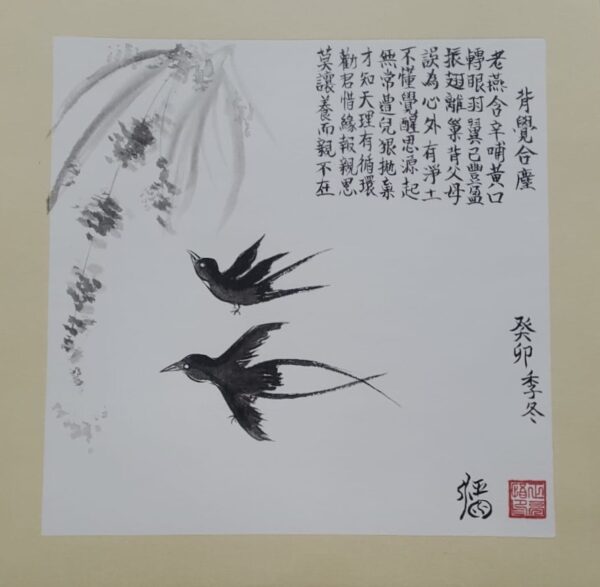 背覺合塵
老燕含辛哺黃口
轉眼羽翼已豐盈
振翅離巢背父母
誤為心外有淨土
不懂覺醒思源起
無常豊兒狠拋棄
才知天理有循環
勸君惜緣報親恩
莫讓養而親不在
癸卯季冬